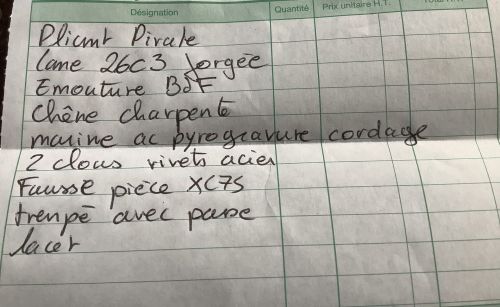 Désignation Quantité Prix unitaire H.T.
Pliant Pirate
Lame 26C3 forgée
Emouture BdF
Chêne charpente
marine ac pyrogravure cordage
2 clous rivets acier
Fausse pièce XC75
trempé avec passe
lacet